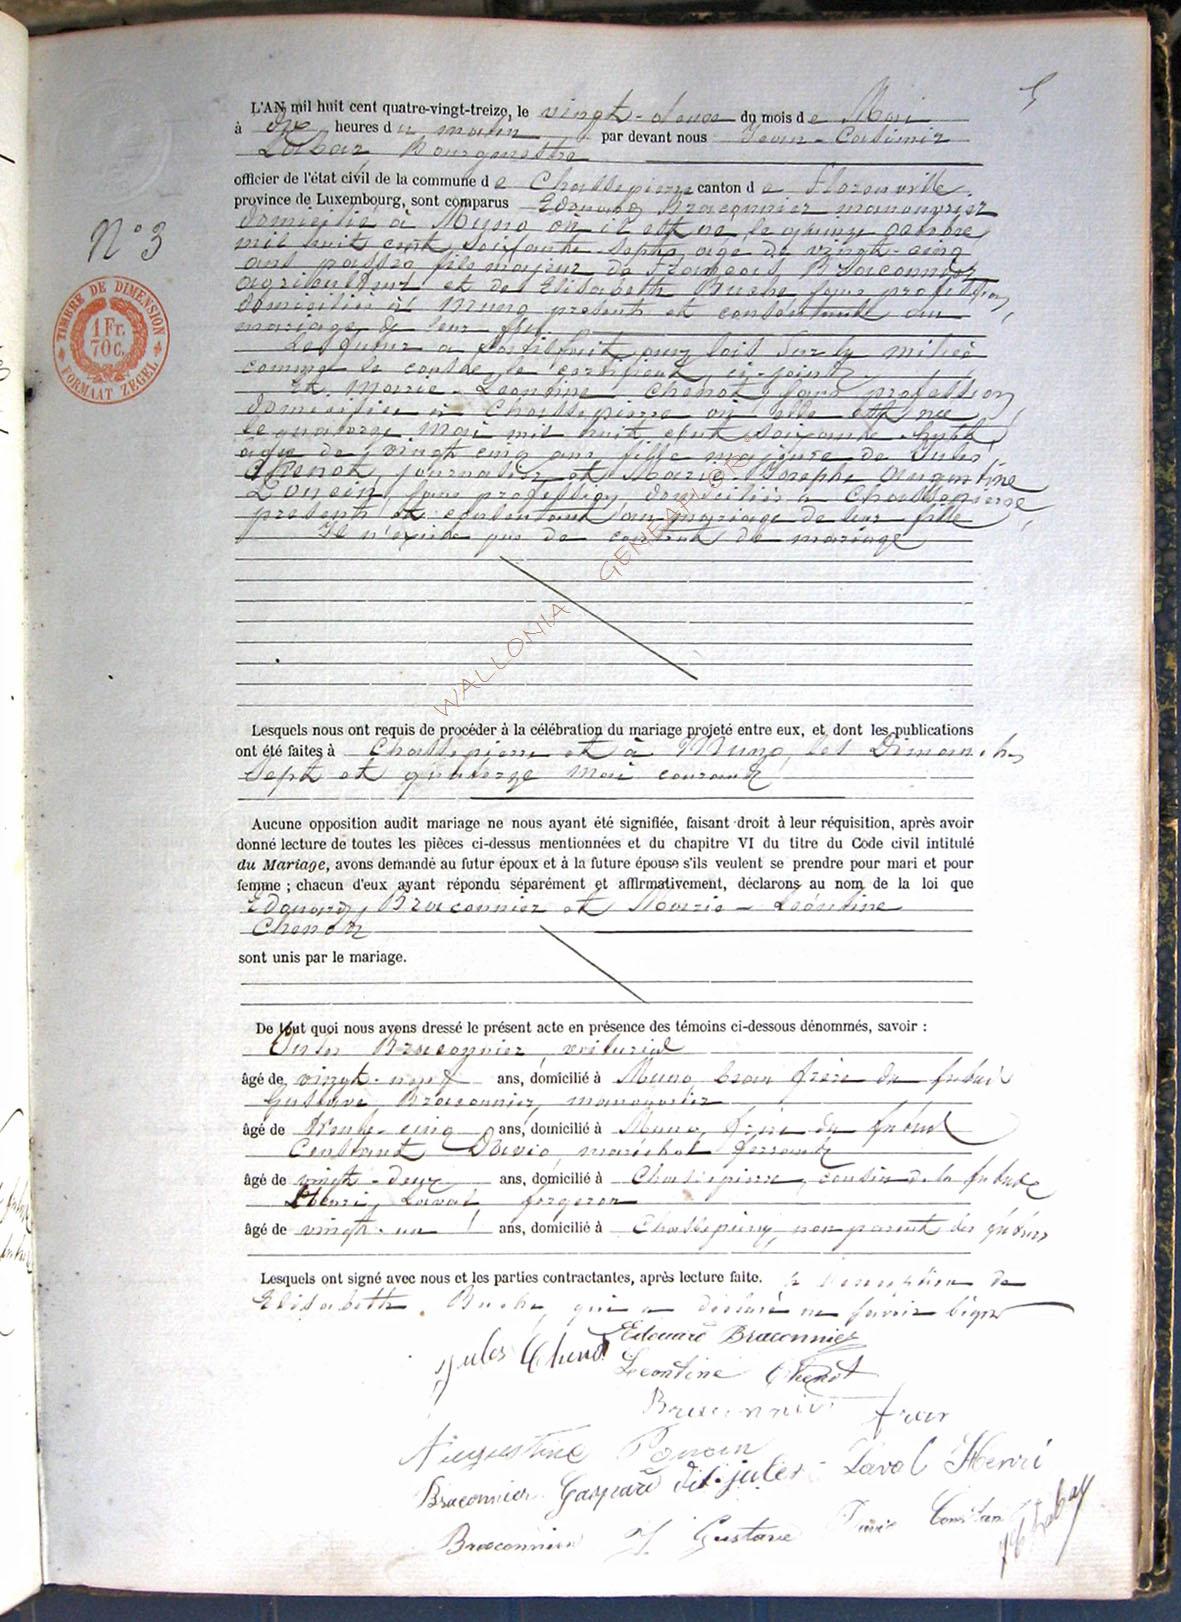 5
L'AN mil huit cent quatre-vingt-treize, le vingt-deux du mois de Mai
à dix heures du matin par devant nous Jean-Casimir
Labar Bourgmestre
officier de l'état civil de la commune de Chassepierre canton de Florenville
province de Luxembourg, sont comparus Edouard Braconnier manouvrier
domicilié à Muno où il est né le quinze octobre
N° 3
mil huit cent soixante sept, age de vingt-cinq
ans passés, fils majeur de François Braconnier
agriculteur et de Elisabeth Buche sans profession,
domiciliés à Muno présents et consentants au
mariage de leur fils
TIMBRE DE DIMENSION
1 Fr.
70 c.
FORMAAT ZEGEL
Lequel a satisfait aux lois sur la milice
comme le constate le certificat ci-joint
Et Marie-Léontine Chenot, sans profession,
domiciliée à Chassepierre où elle est née
le quatorze Mai mil huit cent soixante huit,
âgée de vingt cinq ans, fille majeure de Jules
Chenot, journalier et Marie-Josephe Augustine
sans profession, domiciliés à Chassepierre,
présents et consentant au mariage de leur fille
Il n'existe pas de contrat de mariage
WALLONIA GENEAFLOR
Lesquels nous ont requis de procéder à la célébration du mariage projeté entre eux, et dont les publications
ont été faites à Chassepierre et à Muno, les Dimanches
sept et quatorze Mai courant
Aucune opposition audit mariage ne nous ayant été signifiée, faisant droit à leur réquisition, après avoir
donné lecture de toutes les pièces ci-dessus mentionnées et du chapitre VI du titre du Code civil intitulé
du Mariage, avons demandé au futur époux et à la future épouse s'ils veulent se prendre pour mari et pour
femme ; chacun d'eux ayant répondu séparément et affirmativement, déclarons au nom de la loi que
Edouard Braconnier et Marie-Léontine
Chenot
sont unis par le mariage.
De tout quoi nous avons dressé le présent acte en présence des témoins ci-dessous dénommés, savoir :
Jules Braconnier, voiturier
âgé de vingt-neuf ans, domicilié à Muno, beau frère du futur
Gustave Braconnier, manouvrier
âgé de trente-cinq ans, domicilié à Muno, frère du futur
Constant David, maréchal ferrant
âgé de vingt-deux ans, domicilié à Chassepierre, cousin de la future
Henri Laval, forgeron
âgé de vingt-un ans, domicilié à Chassepierre, non parent des futurs
Lesquels ont signé avec nous et les parties contractantes, après lecture faite. à l'exception de
Elisabeth Buche, qui a déclaré ne savoir signer
Edouard Braconnier
Jules Chenot
Léontine Chenot
Braconnier fran
Augustine
Braconnier Gaspard dit jules Laval Henri
Braconnier J Gustave David Constan
JC Labar